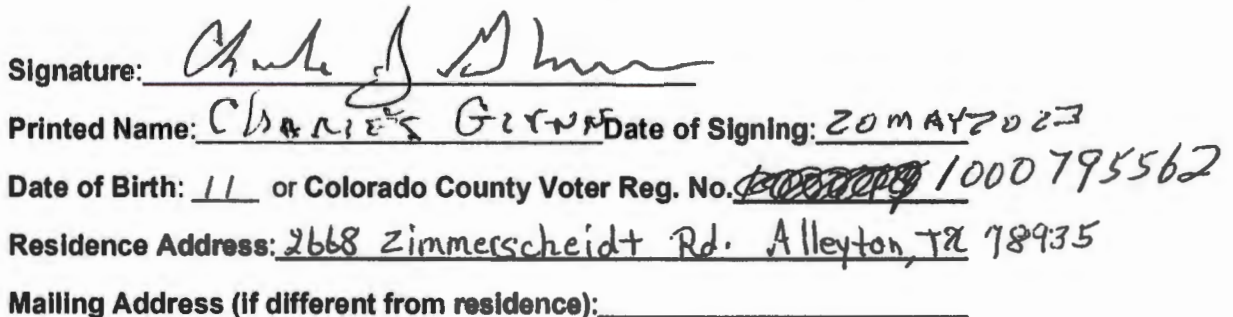 Signature:
Printed Name: Charles Date of Signing: 20 MAY 2023
Date of Birth: 11 or Colorado County Voter Reg. No. 1000795562
Residence Address: 2668 Zimmerscheidt Rd. Alleyton, TX 78935
Mailing Address (if different from residence):